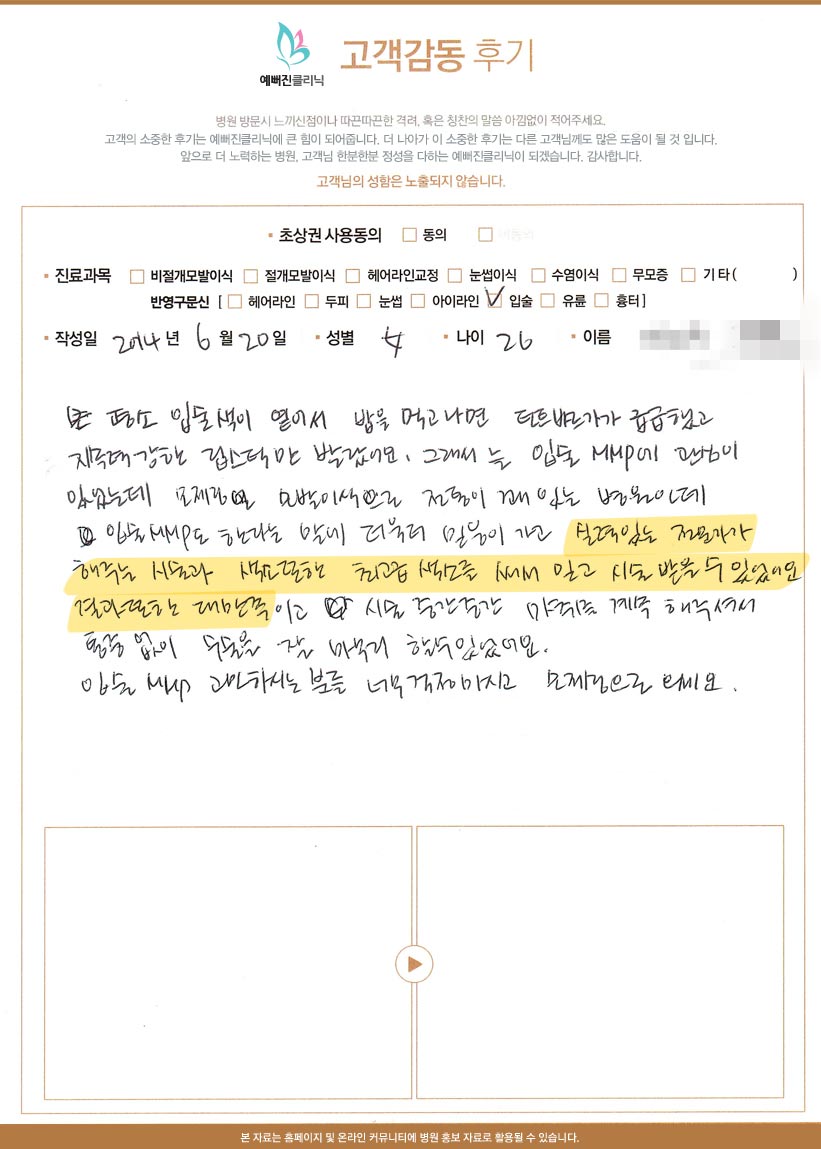 예뻐진클리닉
고객감동 후기
병원 방문시 느끼신점이나 따끈따끈한 격려, 혹은 칭찬의 말씀 아낌없이 적어주세요.
고객의 소중한 후기는 예뻐진클리닉에 큰 힘이 되어줍니다. 더 나아가 이 소중한 후기는 다른 고객님께도 많은 도움이 될 것 입니다.
앞으로 더 노력하는 병원, 고객님 한분한분 정성을 다하는 예뻐진클리닉이 되겠습니다. 감사합니다.
고객님의 성함은 노출되지 않습니다.
초상권 사용동의 동의
진료과목 비절개모발이식 절개모발이식 헤어라인교정 눈썹이식 수염이식 무모증 기타( )
반영구문신 [ 헤어라인 두피 눈썹 아이라인 입술 유륜 흉터 ]
작성일 2014년 6월 20일 성별 女 나이 26 이름
평소 입술색이 옅어서 밥을 먹고나면 틴트바르기가 급급했고
지속력강한 립스틱만 발랐어요. 그래서 늘 입술 MMP에 관심이
있었는데 모제림은 모발이식으로 전통이 꽤 있는 병원인데
입술MMP도 한다는 말에 더욱더 믿음이 가고 실력있는 전문가가
해주는 시술과 색소또한 최고급 색소를 써서 믿고 시술 받을 수 있었어요
결과또한 대만족이고 시술 중간중간 마취크림 계속 해주셔서
통증 없이 시술을 잘 마무리 할수있었어요.
입술 MMP 고민하시는 분들 너무걱정마시고 모제림으로 오세요.
본 자료는 홈페이지 및 온라인 커뮤니티에 병원 홍보 자료로 활용될 수 있습니다.